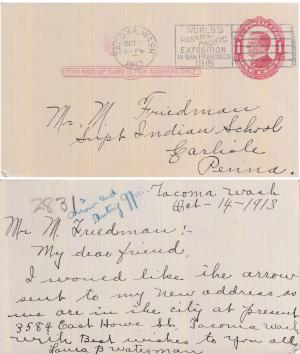 TACOMA, WASH.
OCT
1913
WORLD'S
PANAMA-PACIFIC
EXPOSITION
IN SAN FRANCISCO
1915
THIS SIDE OF CARD IS FOR ADDRESS ONLY
Mr. M. Friedman
Supt Indian School
Carlisle
Penna.
Tacoma Wash
Oct-14-1913
arrow and
Mr M. Friedman:-
My dear friend.
I would like the arrow
sent to my new address as
we are in the city at present
3584 East Howe St. Tacoma, Wash
with Best wishes to you all
Laura B Waterman